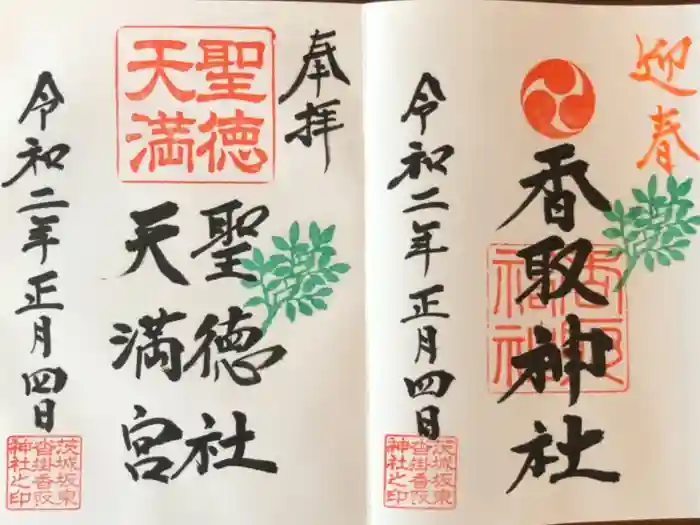 迎春
香取神社
令和二年正月四日
茨城坂東
沓掛香取
神社之印
奉拝
聖徳
天満
聖徳社
天満宮
令和二年正月四日
茨城坂東
沓掛香取
神社之印